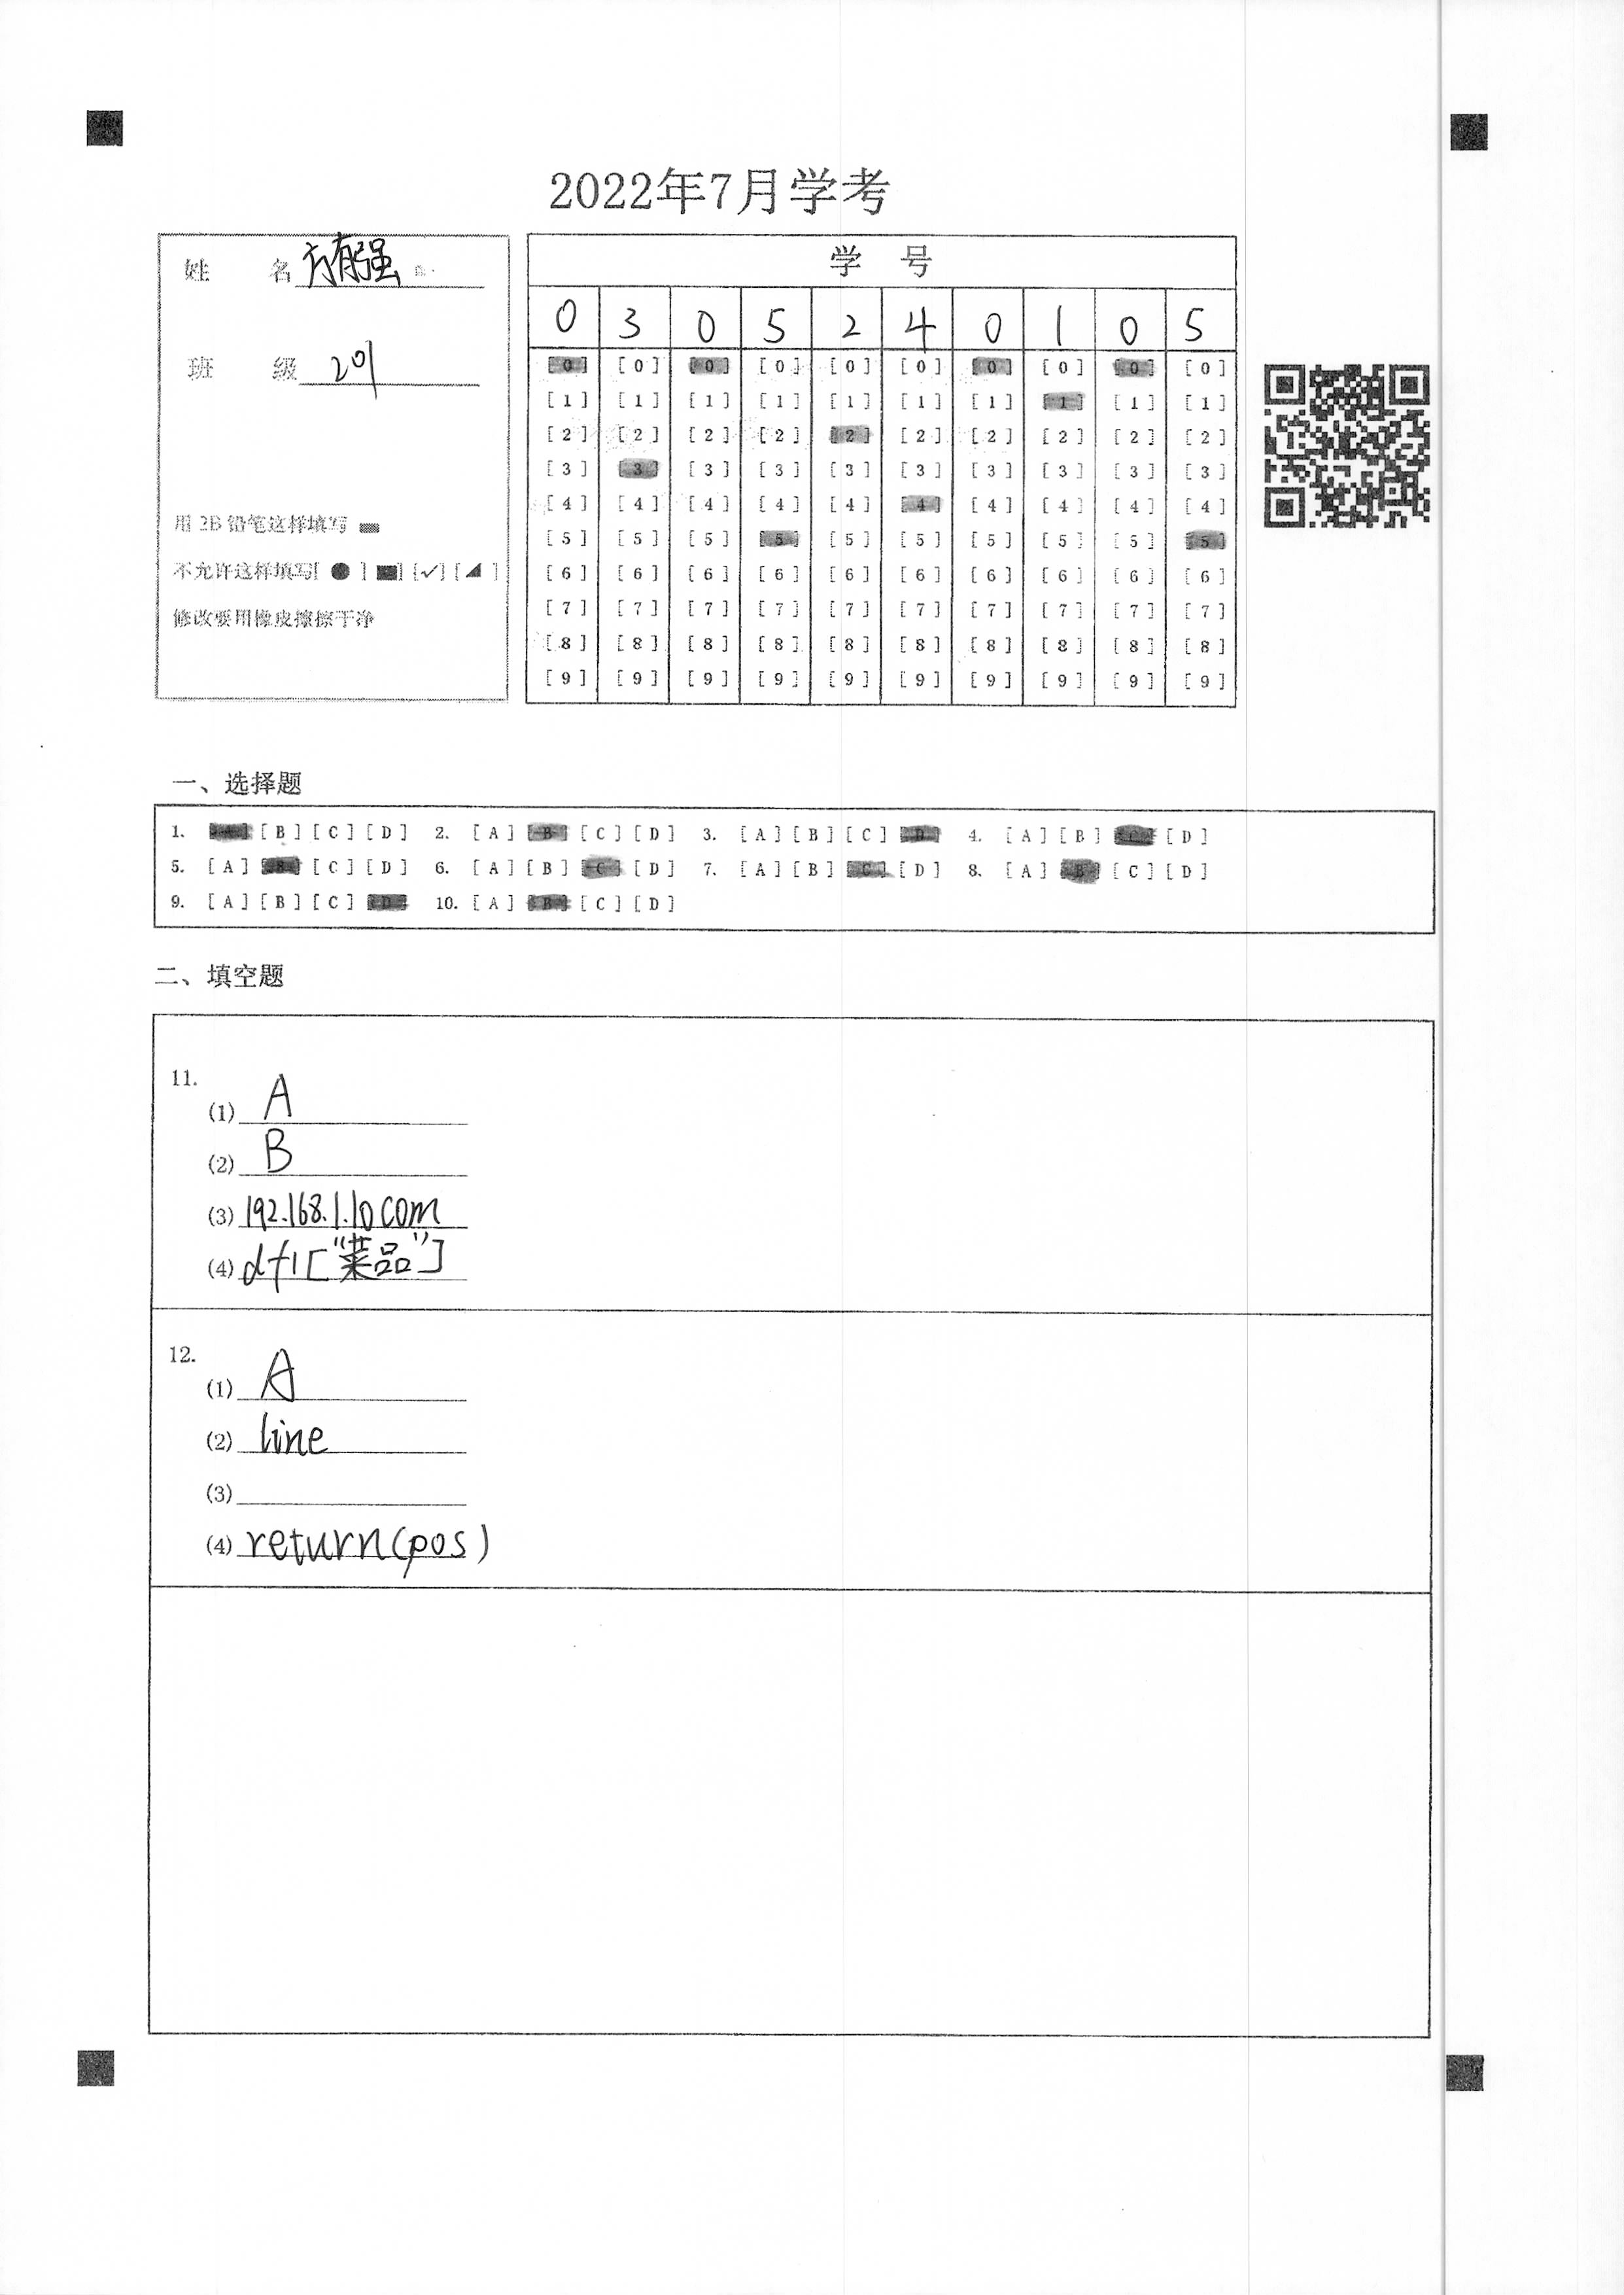 2022年7月学考
姓 名 方有强
班 级 201
用2B铅笔这样填写
不允许这样填写[ ● ] [■] [✓] [◢ ]
修改要用橡皮擦擦干净
学 号
0 3 0 5 2 4 0 1 0 5
[0] [0] [0] [0] [0] [0] [0] [0] [0] [0]
[1] [1] [1] [1] [1] [1] [1] [1] [1] [1]
[2] [2] [2] [2] [2] [2] [2] [2] [2] [2]
[3] [3] [3] [3] [3] [3] [3] [3] [3] [3]
[4] [4] [4] [4] [4] [4] [4] [4] [4] [4]
[5] [5] [5] [5] [5] [5] [5] [5] [5] [5]
[6] [6] [6] [6] [6] [6] [6] [6] [6] [6]
[7] [7] [7] [7] [7] [7] [7] [7] [7] [7]
[8] [8] [8] [8] [8] [8] [8] [8] [8] [8]
[9] [9] [9] [9] [9] [9] [9] [9] [9] [9]
一、选择题
1. [A] [B] [C] [D] 2. [A] [B] [C] [D] 3. [A] [B] [C] [D] 4. [A] [B] [C] [D]
5. [A] [B] [C] [D] 6. [A] [B] [C] [D] 7. [A] [B] [C] [D] 8. [A] [B] [C] [D]
9. [A] [B] [C] [D] 10. [A] [B] [C] [D]
二、填空题
11.
(1) A
(2) B
(3) 192.168.1.10com
(4) df1["菜品"]
12.
(1) A
(2) line
(3)
(4) return(pos)